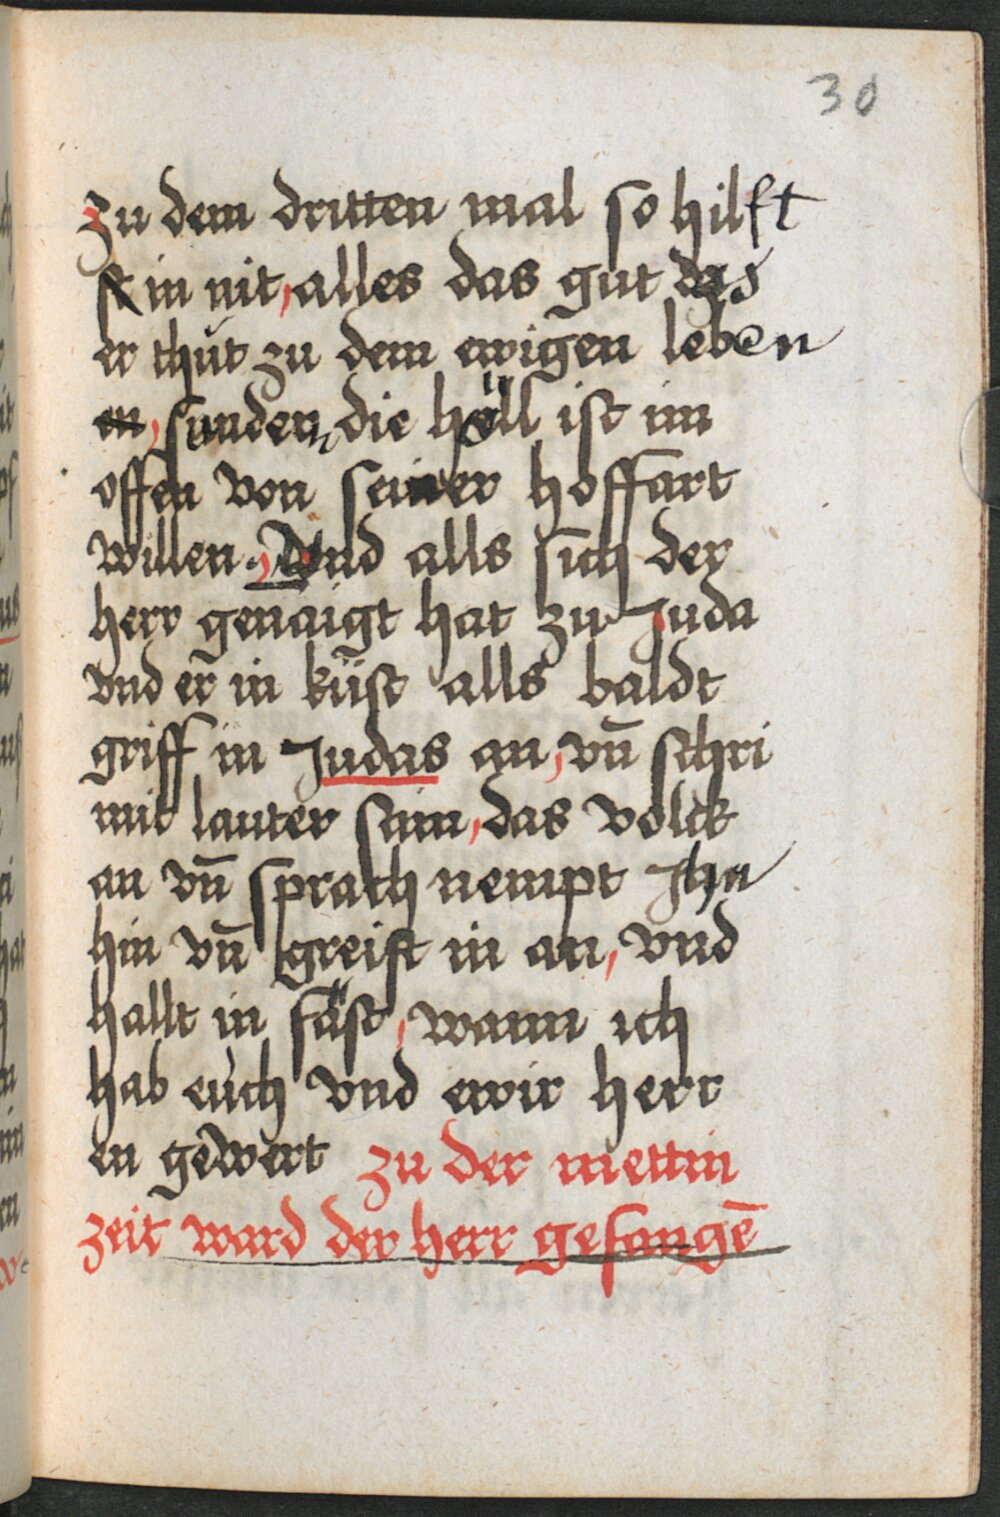 30
Zu dem dritten mal so hilft
in nit, alles das gut das
er thut zu dem ewigen leben
en, sundern die höll ist im
offen von seiner hoffart
willen. Vnd alls sich der
herr genaigt hat zu Juda
vnd er in küst alls baldt
griff in Judas an, vn̄ schri
mit lauter stim, das volck
an vn̄ sprach nempt Jhn
hin vn̄ greift in an, vnd
hallt in fäst, wann ich
hab euch vnd ewir herr
en gewert zu der mettin
zeit ward der herr gefangē